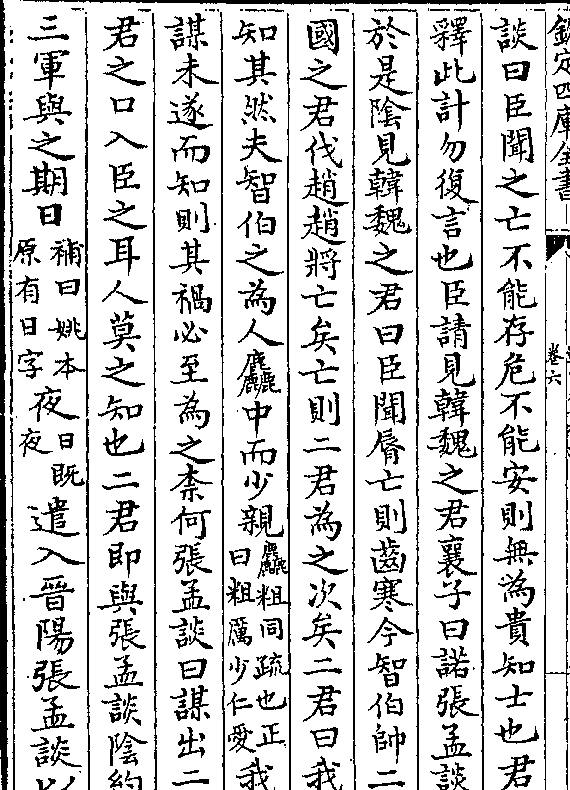 欽定四庫全書
卷六
談曰臣聞之亡不能存危不能安則無為貴知士也君
釋此計勿復言也臣請見韓魏之君襄子曰諾張孟談
於是陰見韓魏之君曰臣聞脣亡則齒寒今智伯帥二
國之君伐趙趙將亡矣亡則二君為之次矣二君曰我
知其然夫智伯之為人麤中而少親麤粗同疏也正曰粗厲少仁愛我
謀未遂而知則其禍必至為之柰何張孟談曰謀出二
君之口入臣之耳人莫之知也二君即與張孟談陰約
三軍與之期日補曰姚本原有日字夜曰既夜遣入晉陽張孟談以